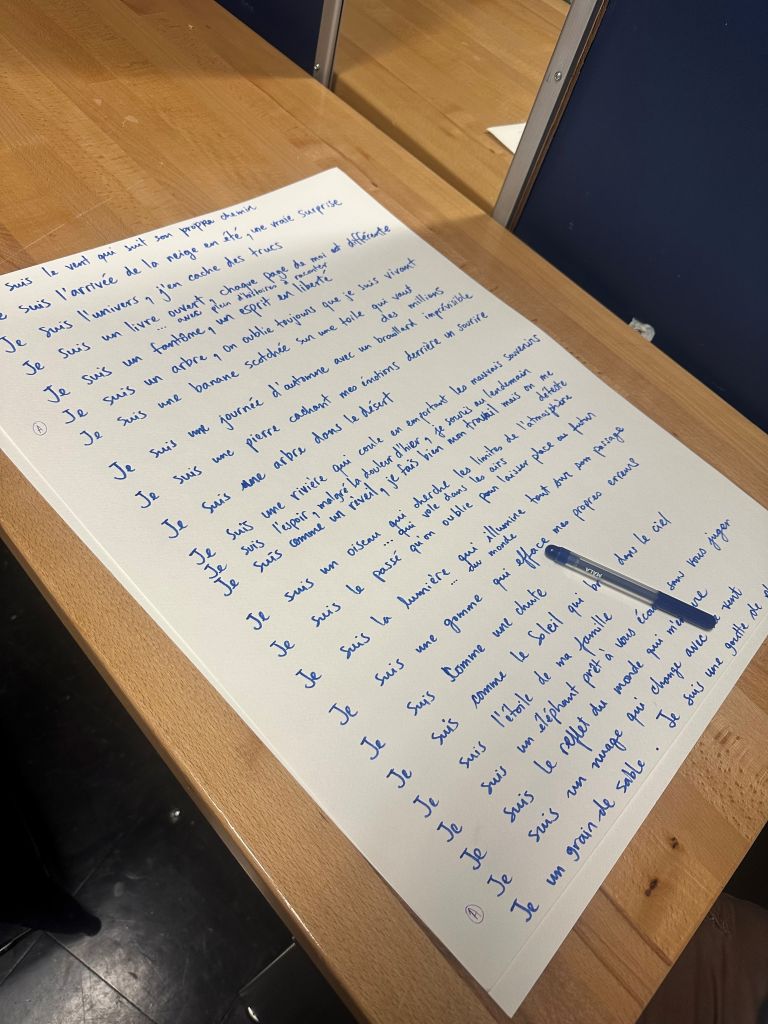 suis le vent qui suit son propre chemin
suis l'arrivée de la neige en été, une vraie surprise
Je suis l'univers, j'en cache des trucs
Je suis un livre ouvert, chaque page de moi est différente
... avec plein d'histoires à raconter
Je suis un fantôme, un esprit en liberté
Je suis un arbre, on oublie toujours que je suis vivant
Je suis une banane scotchée sur une toile qui vaut
des millions
Je suis une journée d'automne avec un brouillard imprévisible
Je suis une pierre cachant mes émotions derrière un sourire
Je suis une arbre dans le désert
Je suis une rivière qui coule en emportant les mauvais souvenirs
Je suis l'espoir, malgré la douleur d'hier, je souris au lendemain
Je suis comme un réveil, je fais bien mon travail mais on me
déteste
Je suis un oiseau qui cherche les limites de l'atmosphère
... qui vole dans les airs
Je suis le passé qu'on oublie pour laisser place au futur
Je suis la lumière qui illumine tout sur son passage
... du monde
Je suis une gomme qui efface mes propres erreurs
Je suis comme une chute
Je suis comme le soleil qui dans le ciel
Je suis l'étoile de ma famille
Je suis un éléphant prêt à vous sans vous juger
Je suis le reflet du monde qui
Je suis un nuage qui change avec vent
Je un grain de sable. Je suis une goutte de
A
A
MAILA